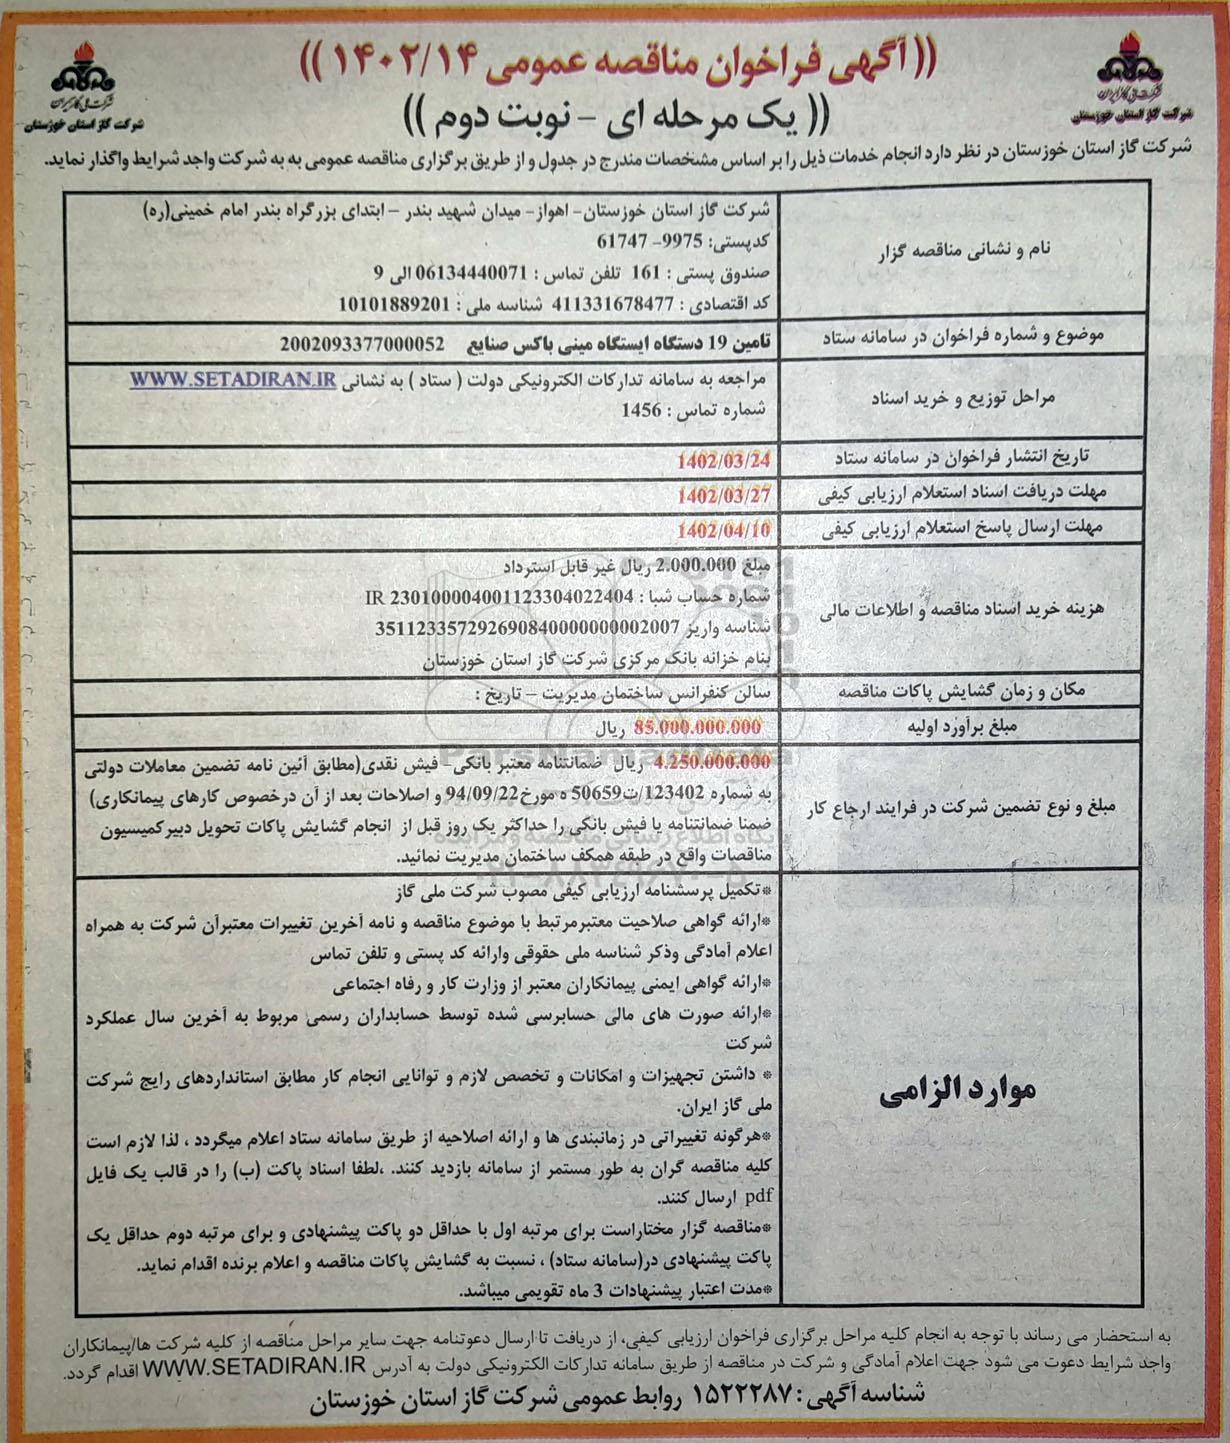 (( آگهی فراخوان مناقصه عمومی ۱۴۰۲/۱۴ ))
(( یک مرحله ای - نوبت دوم ))
شرکت ملی گاز ایران
شرکت گاز استان خوزستان
شرکت ملی گاز ایران
شرکت گاز استان خوزستان
شرکت گاز استان خوزستان در نظر دارد انجام خدمات ذیل را بر اساس مشخصات مندرج در جدول و از طریق برگزاری مناقصه عمومی به به شرکت واجد شرایط واگذار نماید.
نام و نشانی مناقصه گزار
شرکت گاز استان خوزستان- اهواز- میدان شهید بندر – ابتدای بزرگراه بندر امام خمینی(ره)
کدپستی: 9975- 61747
صندوق پستی : 161 تلفن تماس : 06134440071 الی 9
کد اقتصادی : 411331678477 شناسه ملی : 10101889201
موضوع و شماره فراخوان در سامانه ستاد
تامین 19 دستگاه ایستگاه مینی باکس صنایع 2002093377000052
مراحل توزیع و خرید اسناد
مراجعه به سامانه تدارکات الکترونیکی دولت ( ستاد ) به نشانی WWW.SETADIRAN.IR
شماره تماس : 1456
تاریخ انتشار فراخوان در سامانه ستاد
1402/03/24
مهلت دریافت اسناد استعلام ارزیابی کیفی
1402/03/27
مهلت ارسال پاسخ استعلام ارزیابی کیفی
1402/04/10
هزینه خرید اسناد مناقصه و اطلاعات مالی
مبلغ 2.000.000 ریال غیر قابل استرداد
شماره حساب شبا : IR 230100004001123304022404
شناسه واریز 351123357292690840000000002007
بنام خزانه بانک مرکزی شرکت گاز استان خوزستان
مکان و زمان گشایش پاکات مناقصه
سالن کنفرانس ساختمان مدیریت – تاریخ :
مبلغ برآورد اولیه
85.000.000.000 ریال
مبلغ و نوع تضمین شرکت در فرایند ارجاع کار
4.250.000.000 ریال ضمانتنامه معتبر بانکی- فیش نقدی(مطابق آئین نامه تضمین معاملات دولتی
به شماره 123402/ت50659 ه مورخ94/09/22 و اصلاحات بعد از آن درخصوص کارهای پیمانکاری)
ضمنا ضمانتنامه یا فیش بانکی را حداکثر یک روز قبل از انجام گشایش پاکات تحویل دبیرکمیسیون
مناقصات واقع در طبقه همکف ساختمان مدیریت نمائید.
موارد الزامی
*تکمیل پرسشنامه ارزیابی کیفی مصوب شرکت ملی گاز
*ارائه گواهی صلاحیت معتبرمرتبط با موضوع مناقصه و نامه آخرین تغییرات معتبرآن شرکت به همراه
اعلام آمادگی وذکر شناسه ملی حقوقی وارائه کد پستی و تلفن تماس
*ارائه گواهی ایمنی پیمانکاران معتبر از وزارت کار و رفاه اجتماعی
*ارائه صورت های مالی حسابرسی شده توسط حسابداران رسمی مربوط به آخرین سال عملکرد
شرکت
* داشتن تجهیزات و امکانات و تخصص لازم و توانایی انجام کار مطابق استانداردهای رایج شرکت
ملی گاز ایران.
*هرگونه تغییراتی در زمانبندی ها و ارائه اصلاحیه از طریق سامانه ستاد اعلام میگردد ، لذا لازم است
کلیه مناقصه گران به طور مستمر از سامانه بازدید کنند. ،لطفا اسناد پاکت (ب) را در قالب یک فایل
pdf ارسال کنند.
*مناقصه گزار مختاراست برای مرتبه اول با حداقل دو پاکت پیشنهادی و برای مرتبه دوم حداقل یک
پاکت پیشنهادی در(سامانه ستاد) ، نسبت به گشایش پاکات مناقصه و اعلام برنده اقدام نماید.
*مدت اعتبار پیشنهادات 3 ماه تقویمی میباشد.
به استحضار می رساند با توجه به انجام کلیه مراحل برگزاری فراخوان ارزیابی کیفی، از دریافت تا ارسال دعوتنامه جهت سایر مراحل مناقصه از کلیه شرکت ها/پیمانکاران
واجد شرایط دعوت می شود جهت اعلام آمادگی و شرکت در مناقصه از طریق سامانه تدارکات الکترونیکی دولت به آدرس WWW.SETADIRAN.IR اقدام گردد.
شناسه آگهی : ۱۵۲۲۲۸۷ روابط عمومی شرکت گاز استان خوزستان